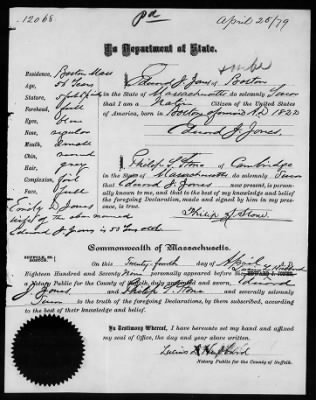 12068
pd
April 25/79
To Department of State.
Residence, Boston Mass
Age, 56 Years
Stature, 5 feet
Forehead, full
Eyes,
Nose, regular
Mouth, small
Chin, round
Hair, gray
Complexion, fair
Face, full
Emily D. Jones
wife of the above named
Edward J. Jones is 50 Years old
I, Edward J. Jones of Boston
in the State of Massachusetts do solemnly Swear
that I am a Native Citizen of the United States
of America, born in Boston A.D. 1822
Edward J. Jones.
I, Philip S. Stone of Cambridge
in the State of Massachusetts do solemnly Swear
that Edward J. Jones now present, is personally
known to me, and that to the best of my knowledge and belief, the
foregoing Declaration, made and signed by him in my presence, is true.
Philip S. Stone
Commonwealth of Massachusetts.
SUFFOLK, SS.
BOSTON.
On this Twenty-fourth day of April
Eighteen Hundred and Seventy Nine personally appeared before me
a Notary Public for the County of Suffolk duly and sworn Edward
J. Jones and Philip S. Stone and severally solemnly
Swore to the truth of the foregoing Declarations, by them subscribed, according
to the best of their knowledge and belief.
In Testimony Whereof, I have hereunto set my hand and affixed
my seal of Office, the day and year above written.
Lucius
Notary Public for the County of Suffolk.